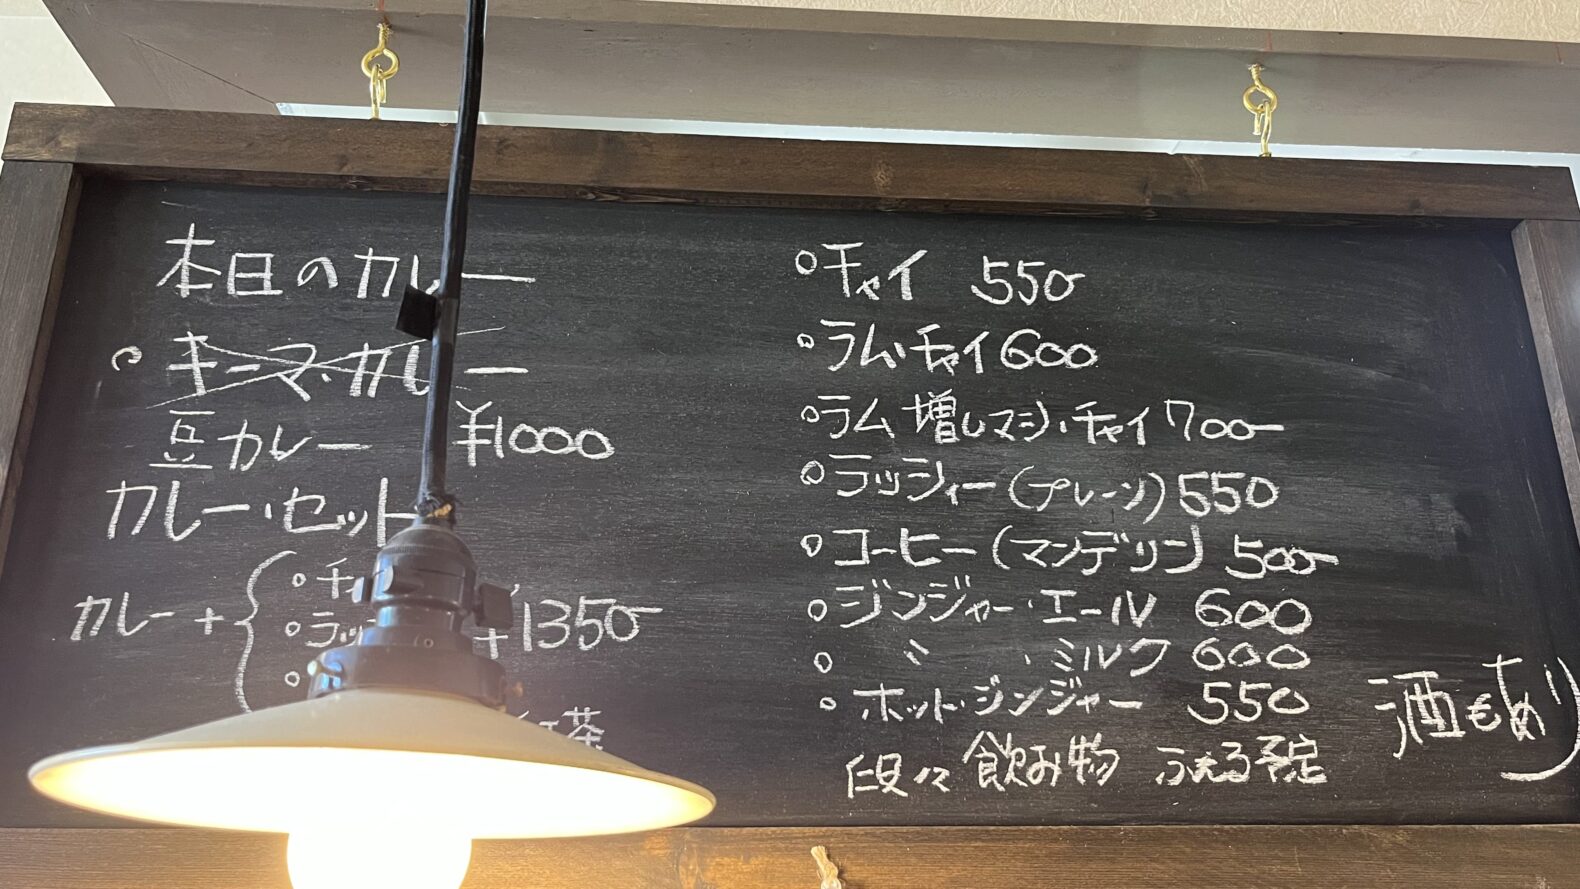 本日のカレー
キーマ・カレー
豆カレー ¥1000
カレー・セット
カレー + 1350
茶
チャイ 550
ラム・チャイ 600
ラム増しマシ・チャイ 700
ラッシィー(プレーン) 550
コーヒー(マンデリン) 500
ジンジャー・エール 600
〃 ・ミルク 600
ホット・ジンジャー 550
段々飲み物 ふえる予定
酒もあり